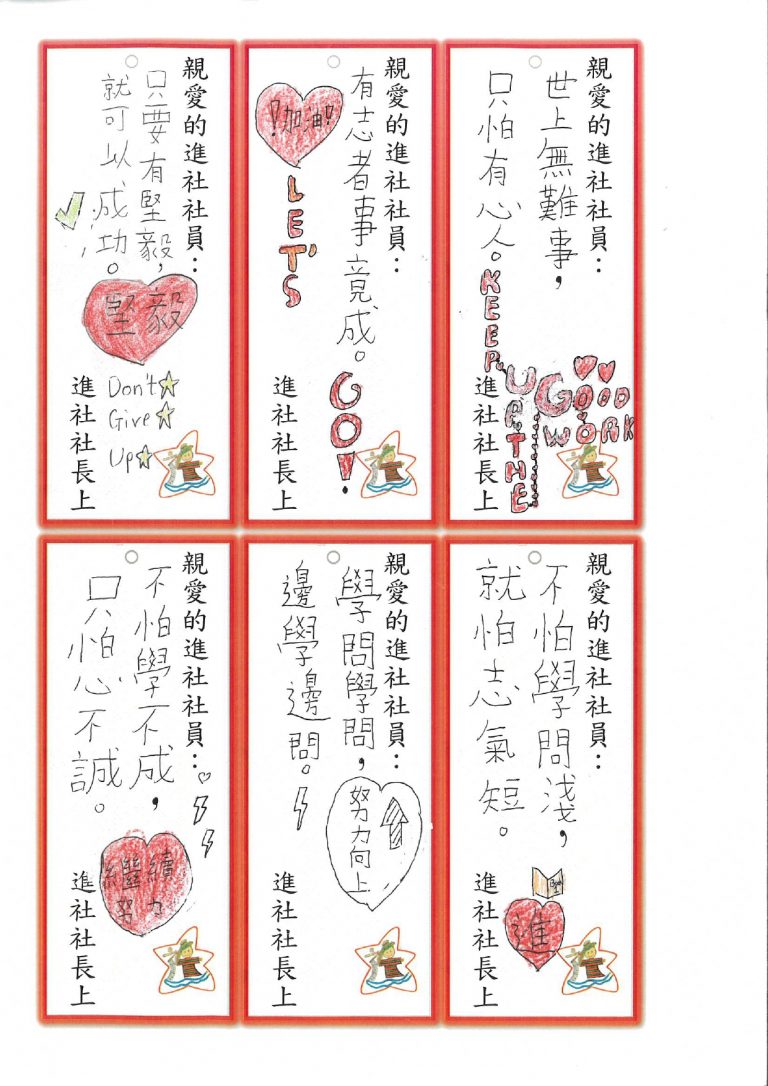 親愛的進社社員：
只要有堅毅，
就可以成功。
堅毅
Don't
Give
Up
進社社長上
親愛的進社社員：
有志者事竟成。
!加油!!
LET'S
GO!
進社社長上
親愛的進社社員：
世上無難事，
只怕有心人。
KEEP
UP THE
GOOD
WORK
進社社長上
親愛的進社社員：
不怕學不成，
只怕心不誠。
繼續
努力
進社社長上
親愛的進社社員：
學問學問，
邊學邊問。
努力向上
進社社長上
親愛的進社社員：
不怕學問淺，
就怕志氣短。
進
進社社長上